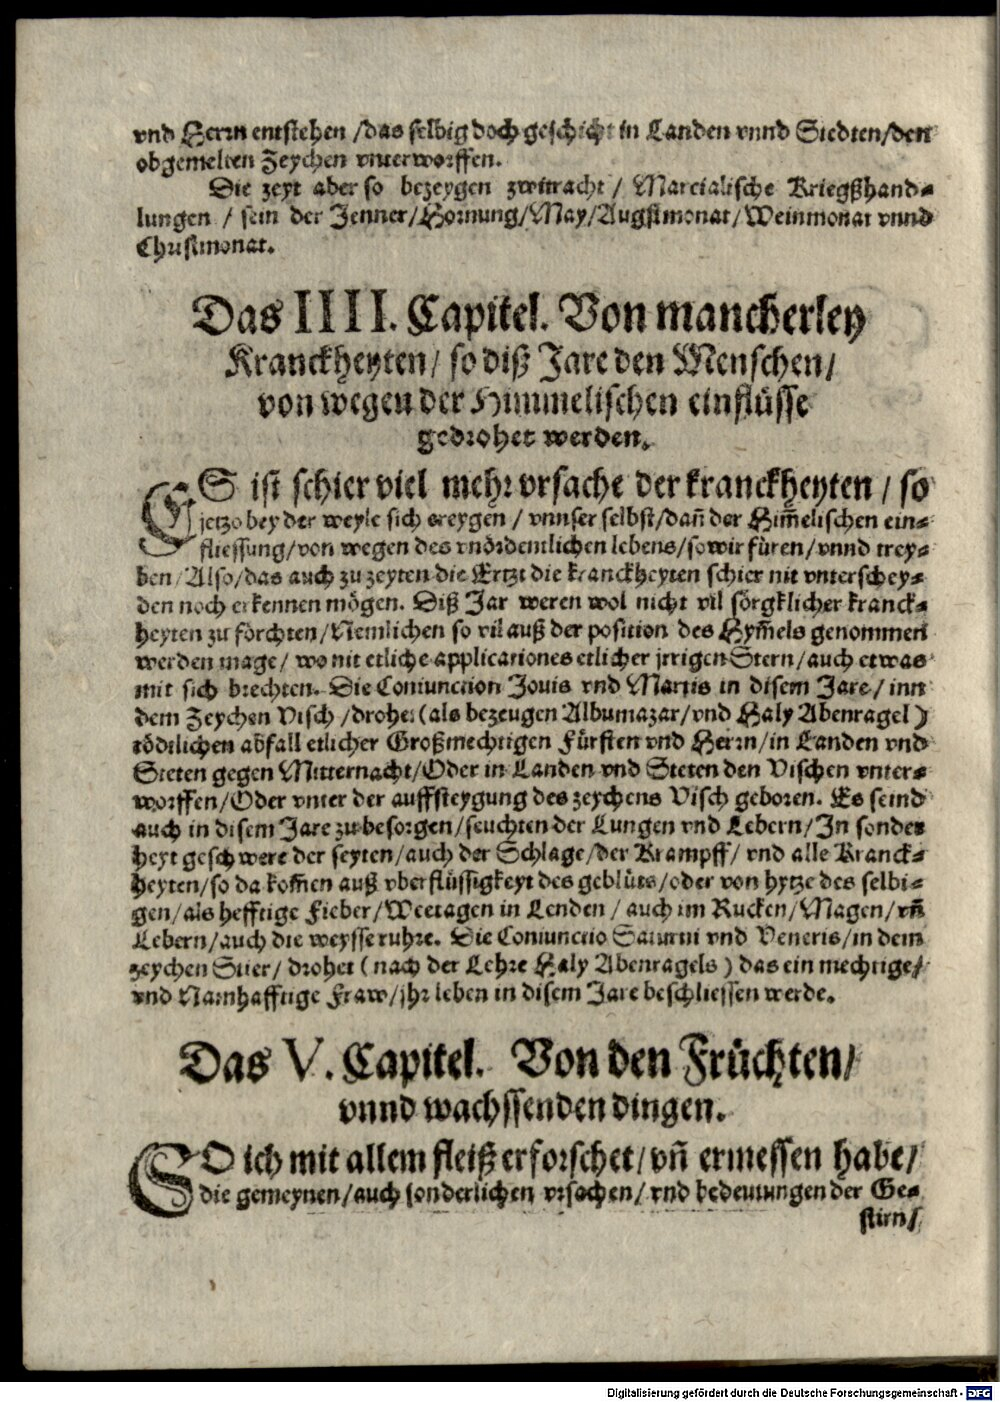 vnd Herrn entstehen /das selbig doch geschicht in Landen vnnd Stedten/den
obgemelten Zeychen vnterworffen.
Die zeyt aber so bezeygen zwitracht / Martialische Kriegßhand-
lungen / sein der Jenner/Hornung/May/Augstmonat/Weinmonat vnnd
Christmonat.
Das IIII. Capitel. Von mancherley
Kranckheyten/ so diß Jare den Menschen/
von wegen der Himmelischen einflüsse
gedrohet werden.
ES ist schier viel mehr vrsache der kranckheyten / so
jetzo bey der weyle sich ereygen / vnnser selbst/dañ der Him̃elischen ein-
fliessung/von wegen des vnördentlichen lebens/so wir füren/vnnd trey-
ben/Also/das auch zu zeyten die Ertzt die kranckheyten schier nit vnterschey-
den noch erkennen mögen. Diß Jar weren wol nicht vil sörgklicher kranck-
heyten zu förchten/Nemlichen so vil auß der position des Hym̃els genommen
werden mage/ wo nit etliche applicationes etlicher jrrigen Stern/auch etwas
mit sich brechten. Die Coniunction Jouis vnd Martis in disem Jare/ inn
dem Zeychen Visch /drohet (als bezeugen Albumazar/vnd Haly Abenragel)
tödtlichen abfall etlicher Großmechtigen Fürsten vnd Herrn/in Landen vnd
Steten gegen Mitternacht/Oder in Landen vnd Steten den Vischen vnter-
worffen/Oder vnter der auffsteygung des zeychens Visch geboren. Es seind
auch in disem Jare zu besorgen/seuchten der Lungen vnd Lebern/In sonder
heyt geschwere der seyten/auch der Schlage/der Krampff/ vnd alle Kranck-
heyten/so da kom̃en auß vberflüssigkeyt des geblüts/oder von hytze des selbi-
gen/als hefftige Fieber/Weetagen in Lenden / auch im Rucken/Magen/vñ
Lebern/auch die weysse ruhre. Die Coniunctio Saturni vnd Veneris/in dem
zeychen Stier/ drohet (nach der Lehre Haly Abenragels) das ein mechtige/
vnd Namhafftige Fraw/jhr leben in disem Jare beschliessen werde.
Das V. Capitel. Von den Früchten/
vnnd wachssenden dingen.
SO ich mit allem fleiß erforschet/vñ ermessen habe/
die gemeynen/auch sonderlichen vrsachen/ vnd bedeutungen der Ge-
stirn/
Digitalisierung gefördert durch die Deutsche Forschungsgemeinschaft - DFG